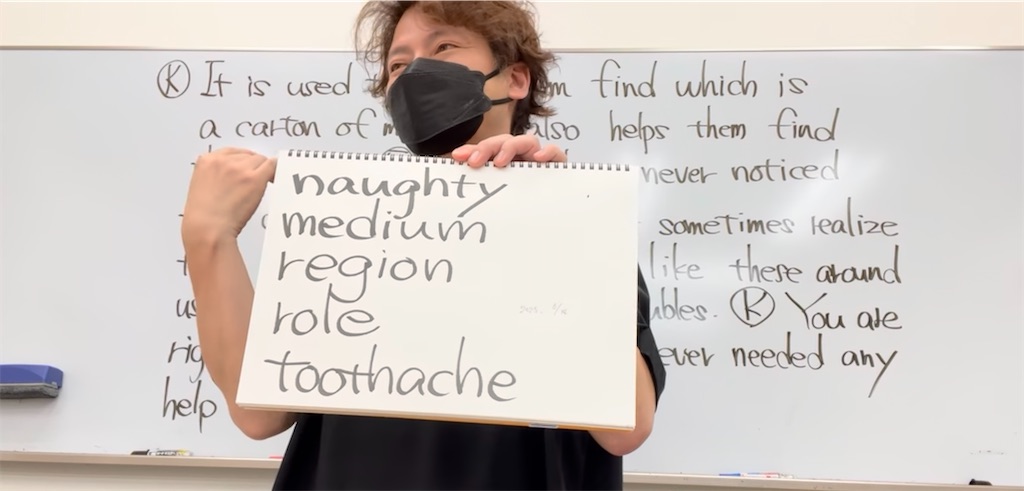 Ⓚ It is used find which is
a carton of also helps them find
never noticed
sometimes realize
like these around
us Ⓚ You are
ever needed any
help
naughty
medium
region
role
toothache